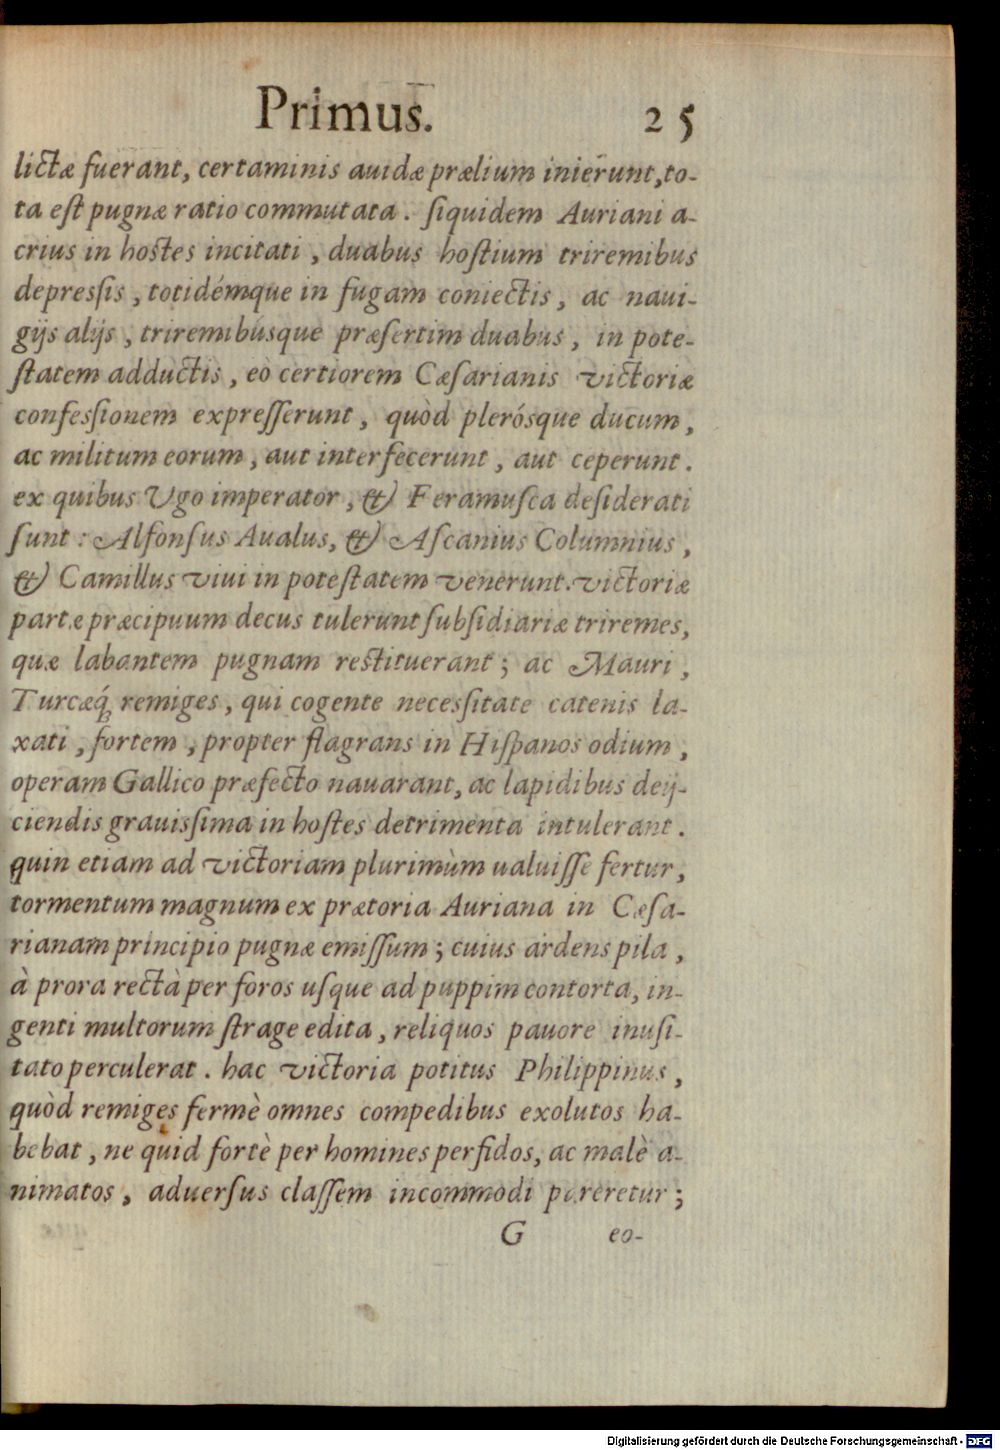 Primus. 25
lictæ fuerant, certaminis auidæ prælium inierunt, to-
ta eſt pugnæ ratio commutata. ſiquidem Auriani a-
crius in hoſtes incitati, duabus hoſtium triremibus
depreſsis, totidémque in fugam coniectis, ac naui-
gijs alijs, triremibusque præſertim duabus, in pote-
ſtatem adductis, eò certiorem Cæſarianis victoriæ
confeſsionem expreſſerunt, quòd plerósque ducum,
ac militum eorum, aut interfecerunt, aut ceperunt.
ex quibus Vgo imperator, & Feramuſca deſiderati
ſunt: Alfonſus Aualus, & Aſcanius Columnius,
& Camillus viui in poteſtatem venerunt. victoriæ
partæ præcipuum decus tulerunt ſubſidiariæ triremes,
quæ labantem pugnam reſtituerant; ac Mauri,
Turcæq́; remiges, qui cogente neceſsitate catenis la-
xati, fortem, propter flagrans in Hiſpanos odium,
operam Gallico præfecto nauarant, ac lapidibus deij-
ciendis grauiſsima in hoſtes detrimenta intulerant.
quin etiam ad victoriam plurimùm ualuiſſe fertur,
tormentum magnum ex prætoria Auriana in Cæſa-
rianam principio pugnæ emiſſum; cuius ardens pila,
à prora rectà per foros uſque ad puppim contorta, in-
genti multorum ſtrage edita, reliquos pauore inuſi-
tato perculerat. hac victoria potitus Philippinus,
quòd remiges fermè omnes compedibus exolutos ha-
bebat, ne quid fortè per homines perfidos, ac malè a-
nimatos, aduerſus claſſem incommodi pareretur;
G eo-
Digitalisierung gefördert durch die Deutsche Forschungsgemeinschaft - DFG